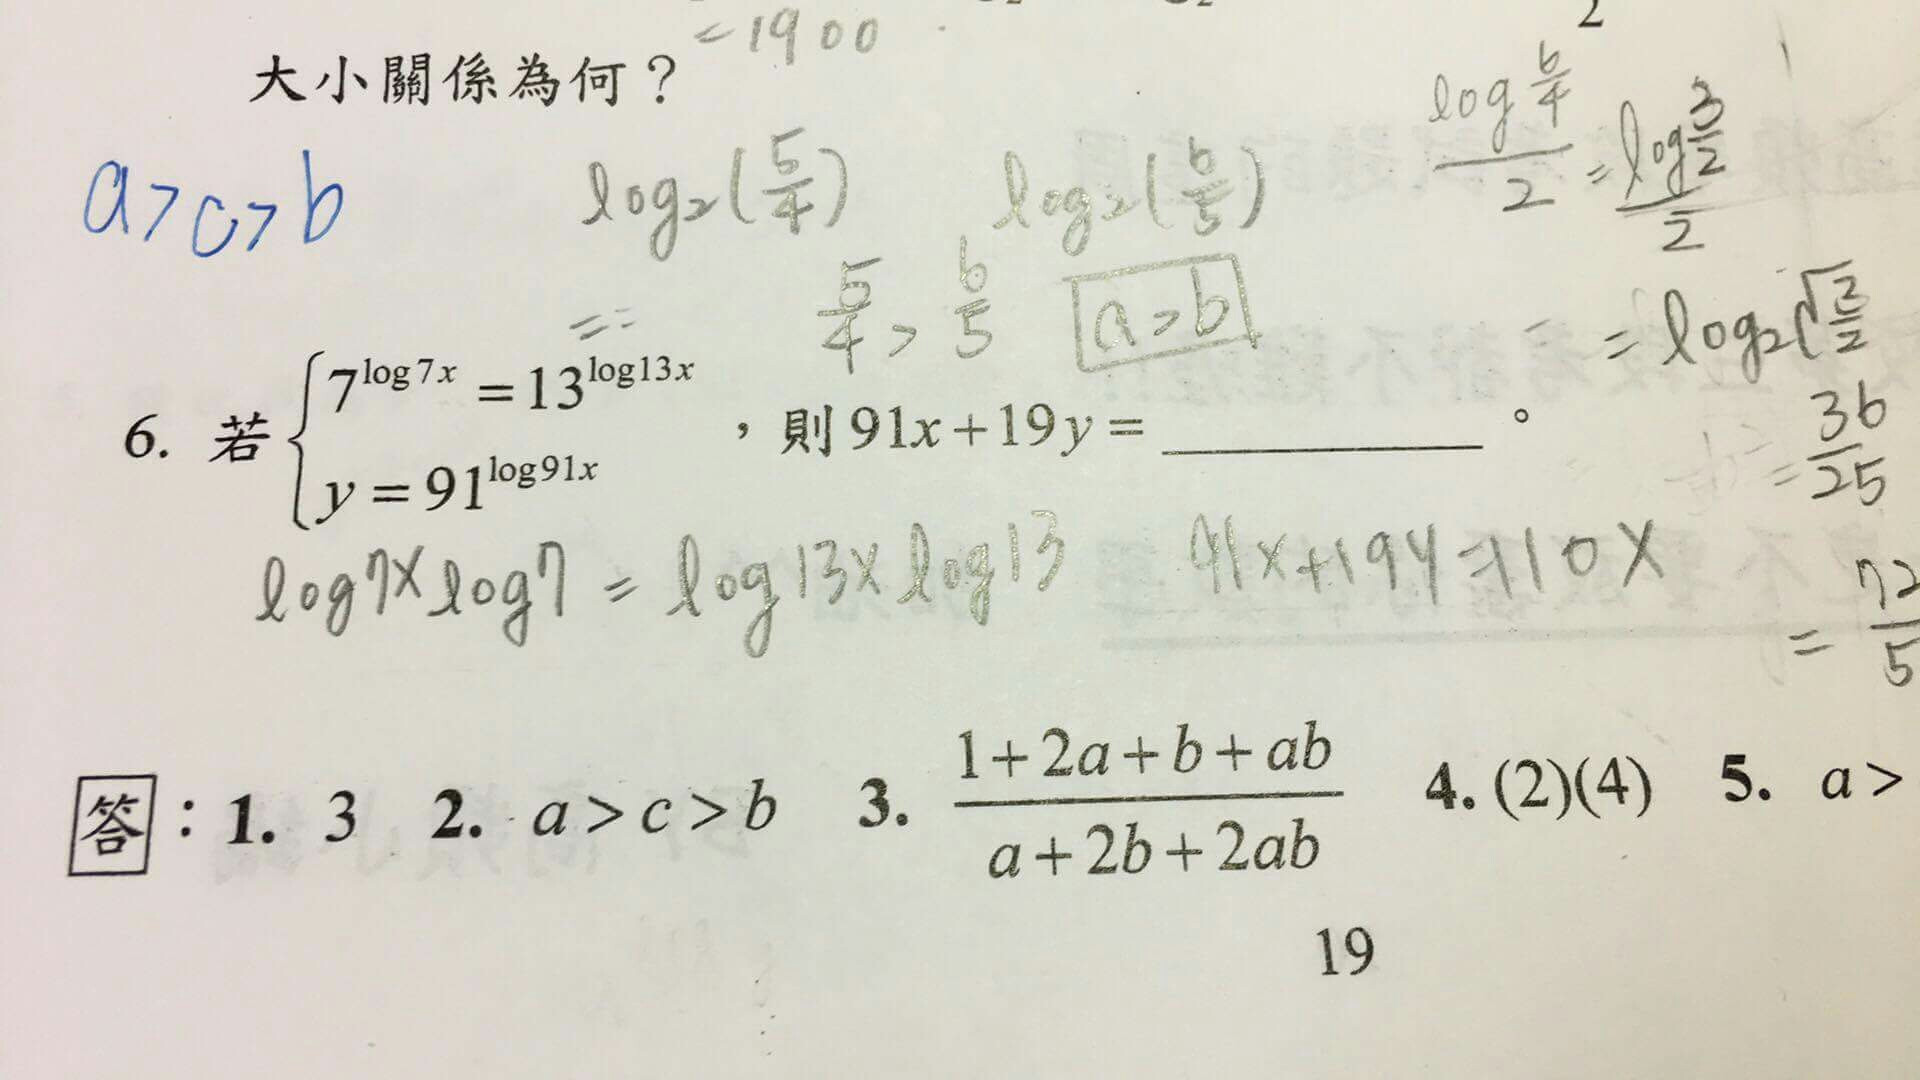 = 1900
大小關係為何？
a > c > b
log₂(5/4) log₂(6/5)
5/4 > 6/5 a > b
log 6/4 / 2 = log 3/2 / 2
= log₂√
= 36/25
= 72/5
6. 若 { 7^{log7x} = 13^{log13x}
y = 91^{log91x} ，則 91x + 19y = ________ 。
log7x log7 = log13x log13 91x+19y = 110x
答：1. 3 2. a > c > b 3. (1+2a+b+ab)/(a+2b+2ab) 4. (2)(4) 5. a >
19